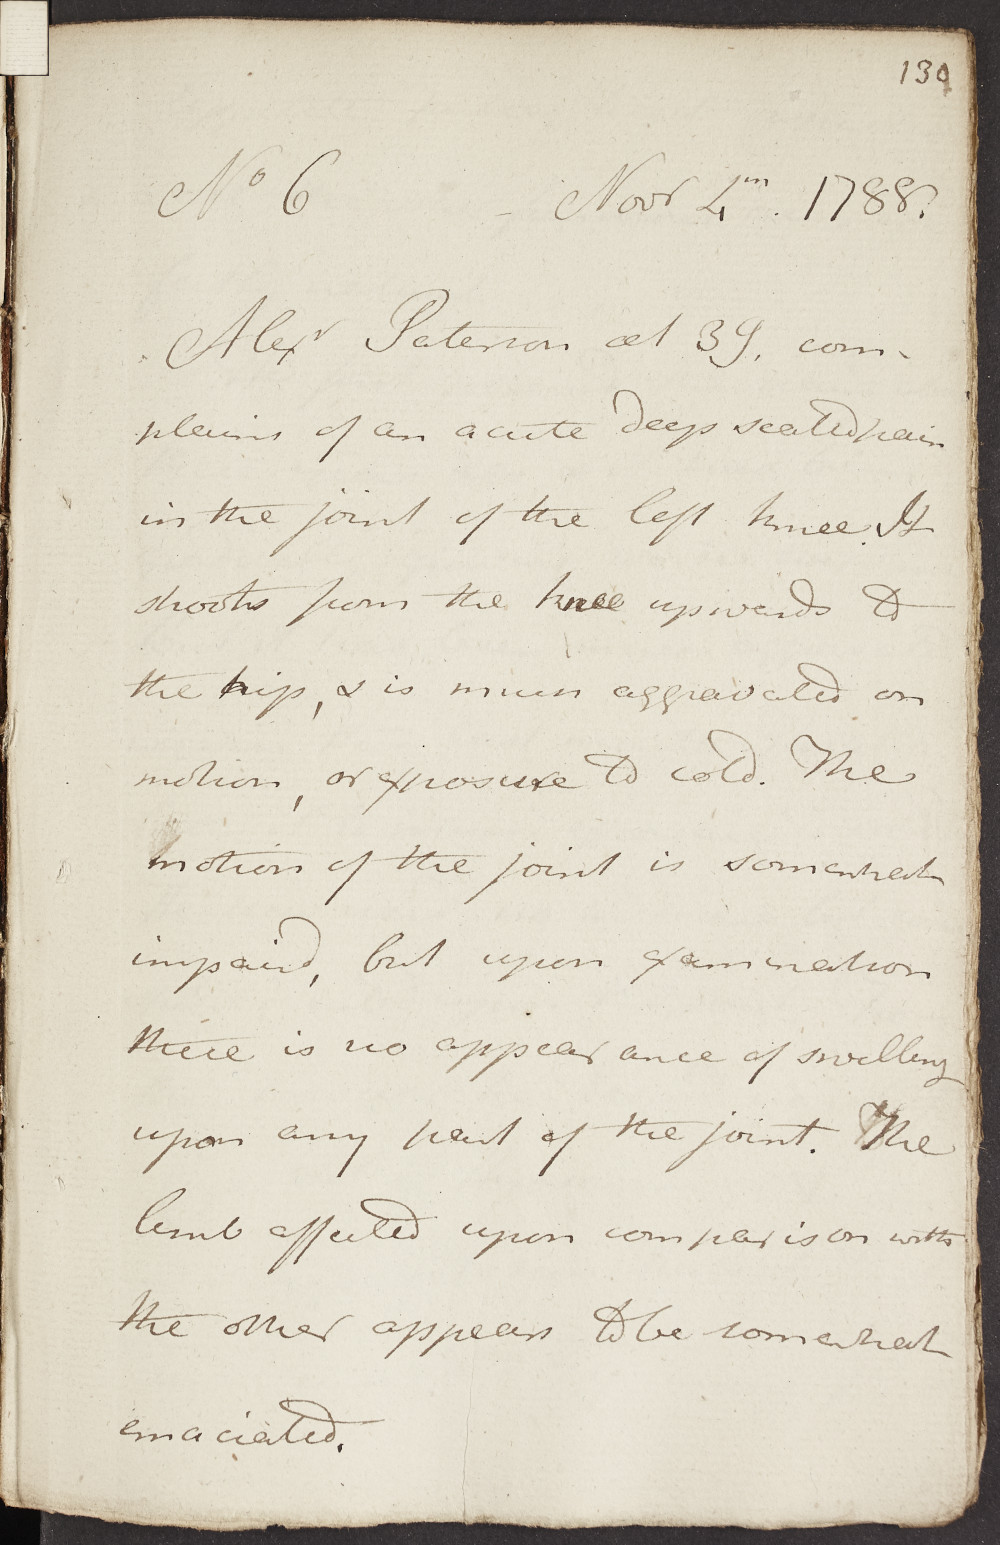 139
No 6 - Novr 4th. 1788.
Alexr Paterson æt 39. com-
plains of an acute deep seated pain
in the joint of the left knee. It
shoots from the knee upwards to
the hip, & is much aggravated on
motion, or exposure to cold. The
motion of the joint is somewhat
impaird, but upon examination
there is no appearance of swelling
upon any part of the joint. The
limb affected upon comparison with
the other appears to be somewhat
emaciated.